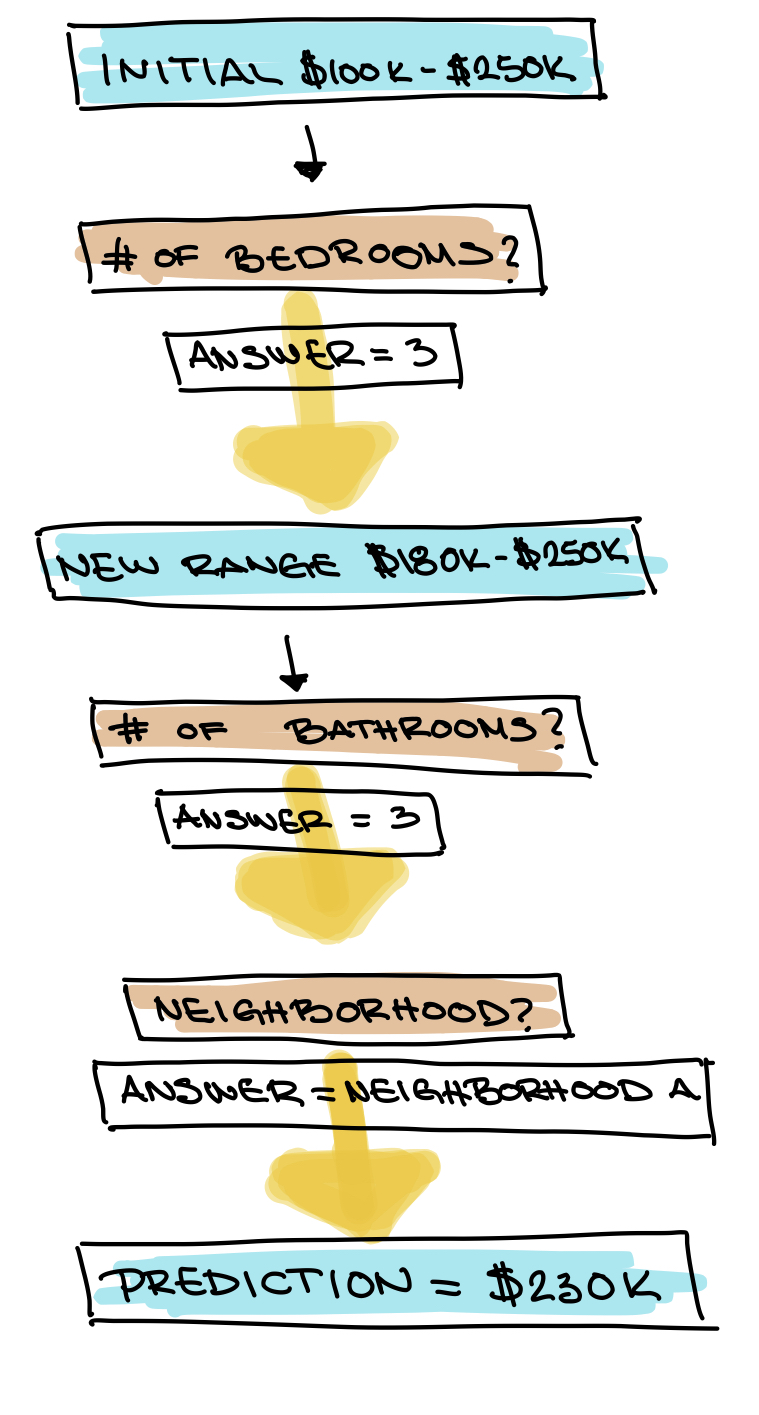 INITIAL $100K-$250K
# OF BEDROOMS?
ANSWER = 3
NEW RANGE $180K-$250K
# OF BATHROOMS?
ANSWER = 3
NEIGHBORHOOD?
ANSWER = NEIGHBORHOOD A
PREDICTION = $230K